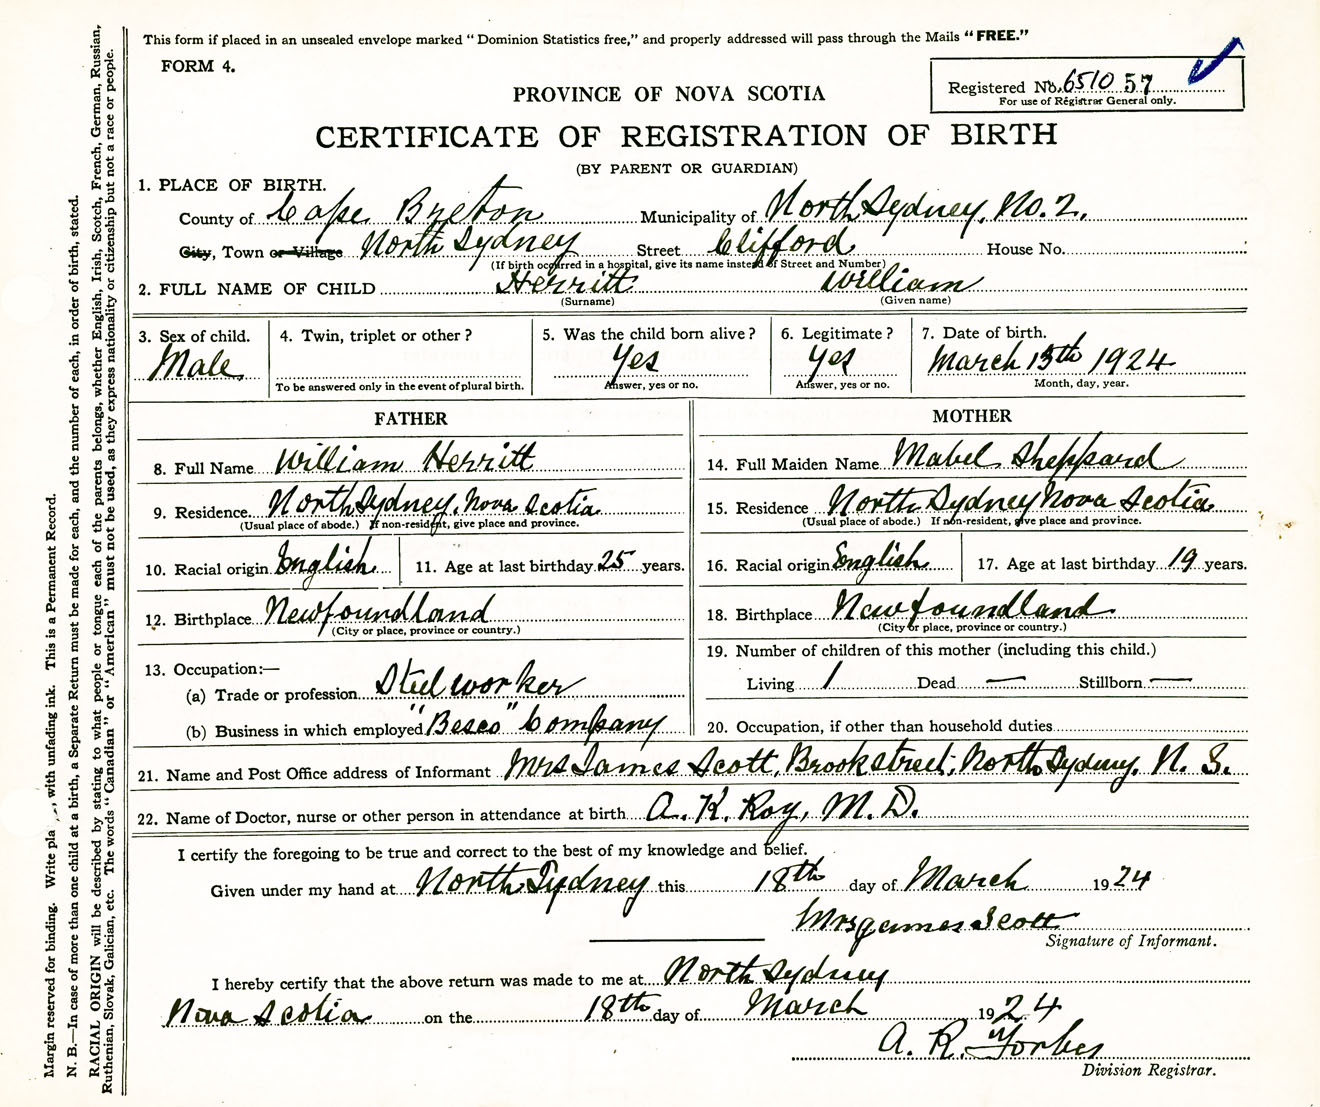 This form if placed in an unsealed envelope marked "Dominion Statistics free," and properly addressed will pass through the Mails "FREE."
FORM 4.
Registered No. 651057
For use of Registrar General only.
PROVINCE OF NOVA SCOTIA
CERTIFICATE OF REGISTRATION OF BIRTH
(BY PARENT OR GUARDIAN)
1. PLACE OF BIRTH.
County of Cape Breton Municipality of North Sydney, No. 2.
City, Town or Village North Sydney Street Clifford House No.
(If birth occurred in a hospital, give its name instead of Street and Number)
2. FULL NAME OF CHILD Herritt William
(Surname) (Given name)
3. Sex of child. 4. Twin, triplet or other? 5. Was the child born alive? 6. Legitimate? 7. Date of birth.
Male Yes Yes March 15th 1924
To be answered only in the event of plural birth. Answer, yes or no. Answer, yes or no. Month, day, year.
FATHER
8. Full Name William Herritt
9. Residence North Sydney, Nova Scotia
(Usual place of abode.) If non-resident, give place and province.
10. Racial origin English 11. Age at last birthday 25 years.
12. Birthplace Newfoundland
(City or place, province or country.)
13. Occupation:—
(a) Trade or profession Steel worker
(b) Business in which employed "Besco" Company
MOTHER
14. Full Maiden Name Mabel Sheppard
15. Residence North Sydney Nova Scotia
(Usual place of abode.) If non-resident, give place and province.
16. Racial origin English 17. Age at last birthday 19 years.
18. Birthplace Newfoundland
(City or place, province or country.)
19. Number of children of this mother (including this child.)
Living 1 Dead — Stillborn —
20. Occupation, if other than household duties
21. Name and Post Office address of Informant Mrs James Scott, Brook street, North Sydney, N. S.
22. Name of Doctor, nurse or other person in attendance at birth A. K. Roy, M. D.
I certify the foregoing to be true and correct to the best of my knowledge and belief.
Given under my hand at North Sydney this 18th day of March 1924
Mrs James Scott
Signature of Informant.
I hereby certify that the above return was made to me at North Sydney
Nova Scotia on the 18th day of March 1924
A. R. Forbes
Division Registrar.
Margin reserved for binding. Write with unfading ink. This is a Permanent Record.
N. B.—In case of more than one child at a birth, a Separate Return must be made for each, and the number of each, in order of birth, stated.
RACIAL ORIGIN will be described by stating to what people or tongue each of the parents belongs, whether English, Irish, Scotch, French, German, Russian,
Ruthenian, Slovak, Galician, etc. The words "Canadian" or "American" must not be used, as they express nationality or citizenship but not a race or people.